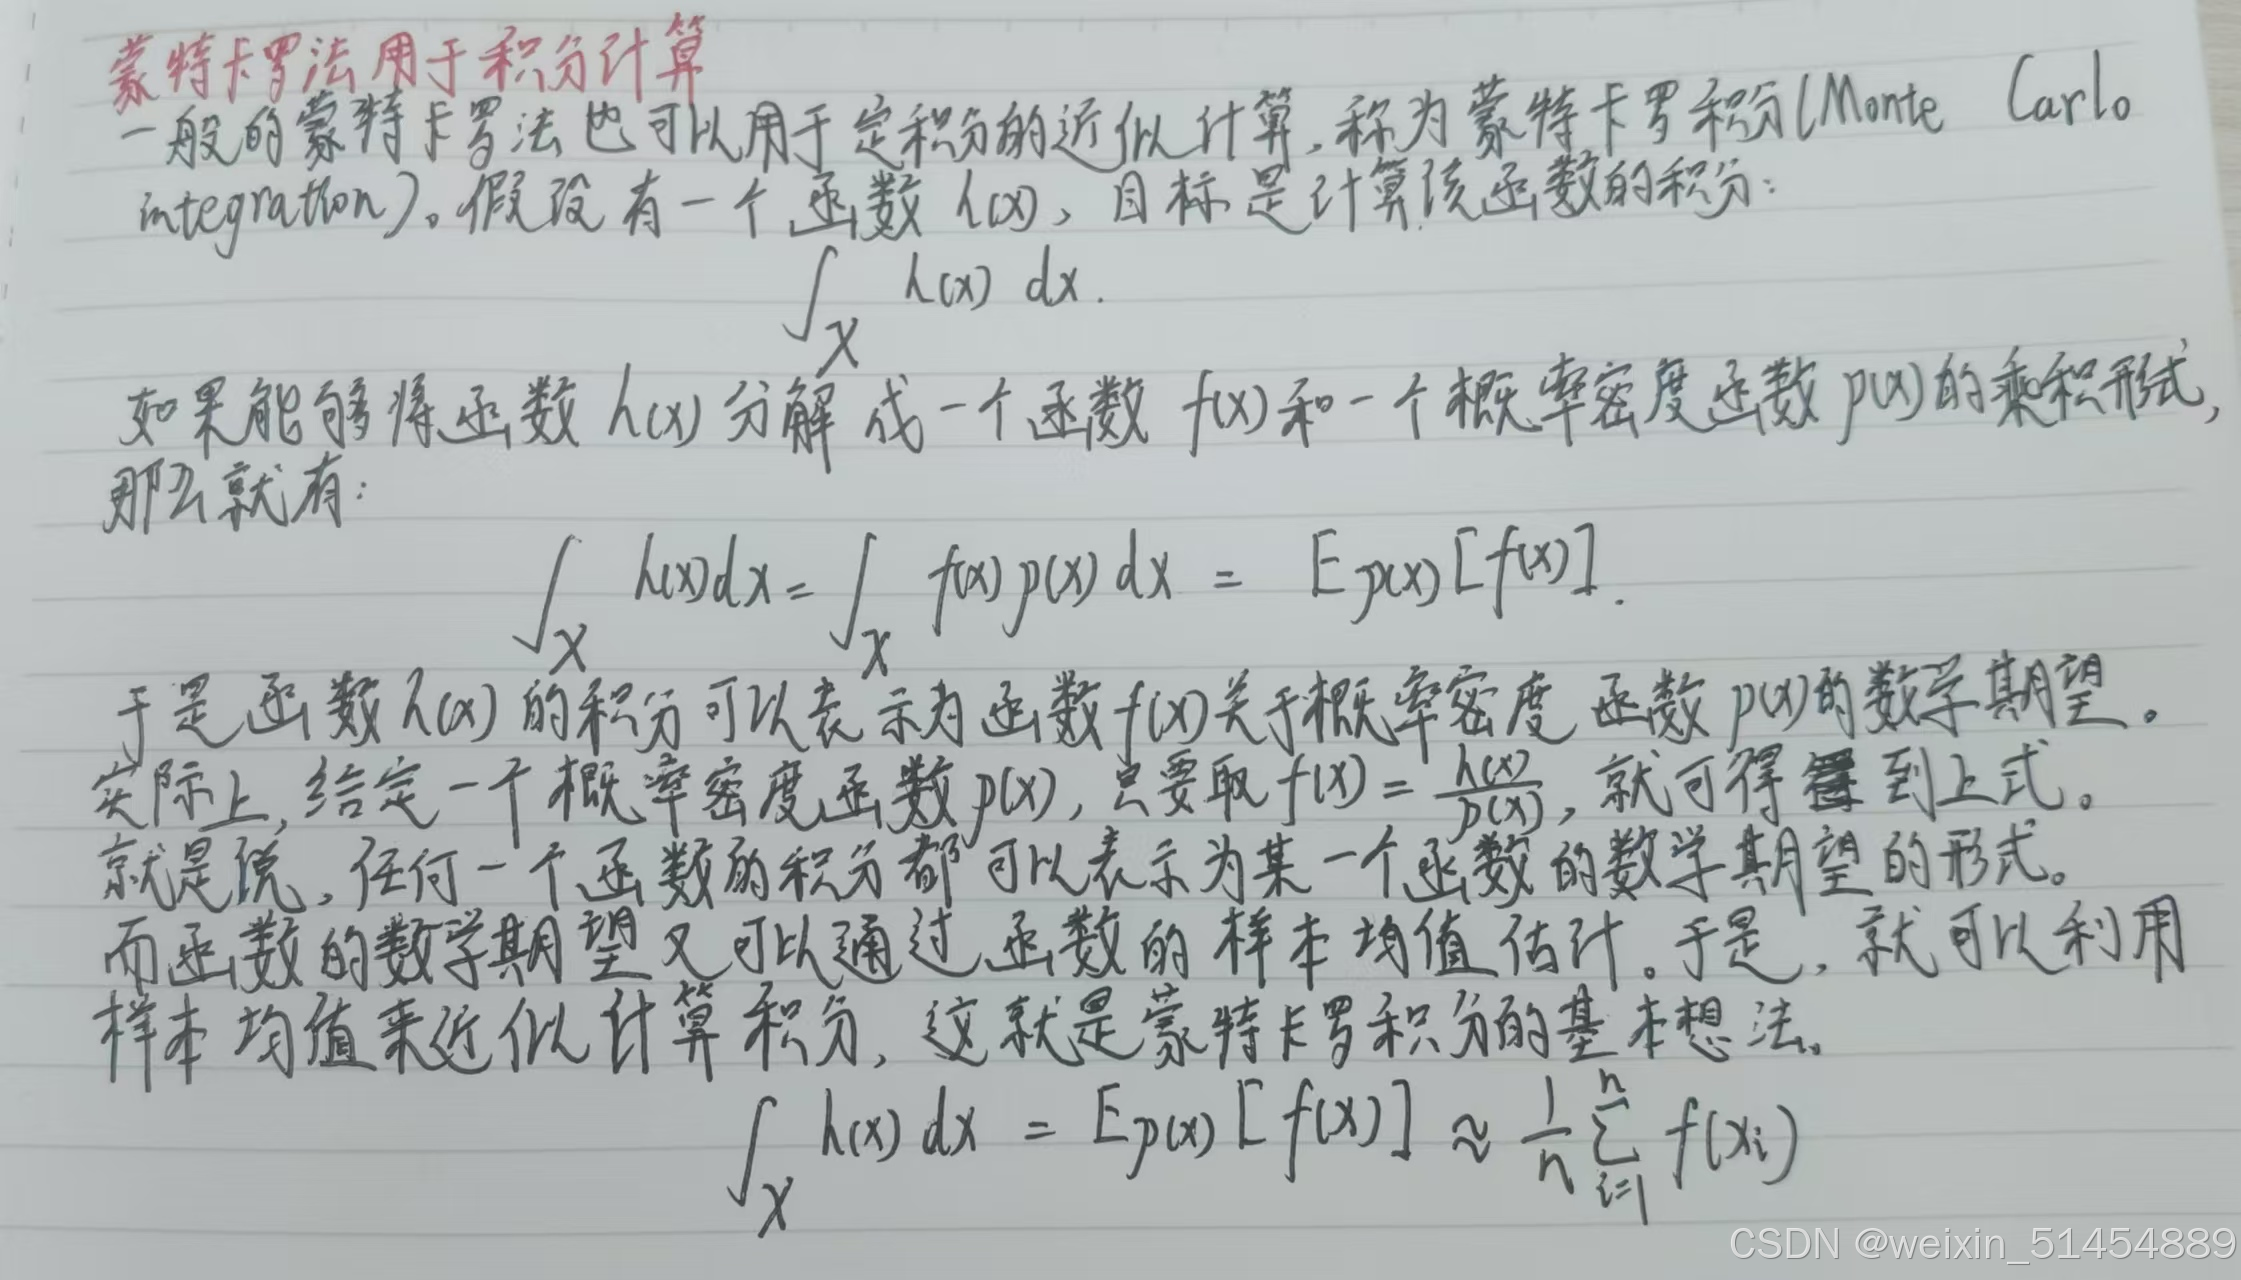 蒙特卡罗法用于积分计算
一般的蒙特卡罗法也可以用于定积分的近似计算,称为蒙特卡罗积分(Monte Carlo
integration)。假设有一个函数 h(x),目标是计算该函数的积分:
∫_X h(x) dx.
如果能够将函数 h(x) 分解成一个函数 f(x) 和一个概率密度函数 p(x) 的乘积形式,
那么就有:
∫_X h(x)dx = ∫_X f(x)p(x)dx = E_{p(x)}[f(x)].
于是函数 h(x) 的积分可以表示为函数 f(x) 关于概率密度函数 p(x) 的数学期望。
实际上,给定一个概率密度函数 p(x),只要取 f(x) = h(x)/p(x),就可得到上式。
就是说,任何一个函数的积分都可以表示为某一个函数的数学期望的形式。
而函数的数学期望又可以通过函数的样本均值估计。于是,就可以利用
样本均值来近似计算积分,这就是蒙特卡罗积分的基本想法。
∫_X h(x)dx = E_{p(x)}[f(x)] ≈ 1/n ∑_{i=1}^{n} f(x_i)
CSDN @weixin_51454889